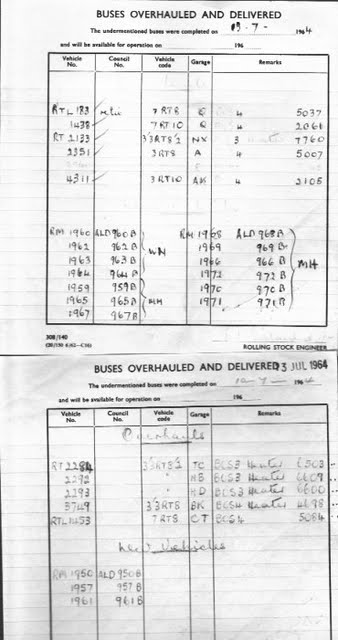 BUSES OVERHAULED AND DELIVERED
The undermentioned buses were completed on 13-7- 1964
and will be available for operation on 196
Vehicle No. Council No. Vehicle code Garage Remarks
RTL 183 7RT8 Q 4 5037
1438 7RT10 Q 4 2066
RT 2133 3'3RT8'2 NX 3 Heater 7760
2351 3RT8 A 4 5007
4311 3RT10 AK 4 2105
RM 1960 ALD 960B RM 1968 ALD 968B
1962 962B 1969 969B
1963 963B WN 1966 966B
1964 964B 1972 972B MH
1959 959B 1970 970B
1965 965B 1971 971B
1967 967B
308/140
ROLLING STOCK ENGINEER
BUSES OVERHAULED AND DELIVERED 13 JUL 1964
The undermentioned buses were completed on 10-7- 1964
and will be available for operation on 196
Vehicle No. Council No. Vehicle code Garage Remarks
Overhauls
RT 2284 3'3RT8'2 TC BCS3 Heater 6503
2292 HB BCS3 Heater 6609
2293 HD BCS3 Heater 6600
3749 3'3RT8 BK BCS4 Heater 4698
RTL 1453 7RT8 CT BCS4 5084
New Vehicles
RM 1950 ALD 950B
1957 957B
1961 961B